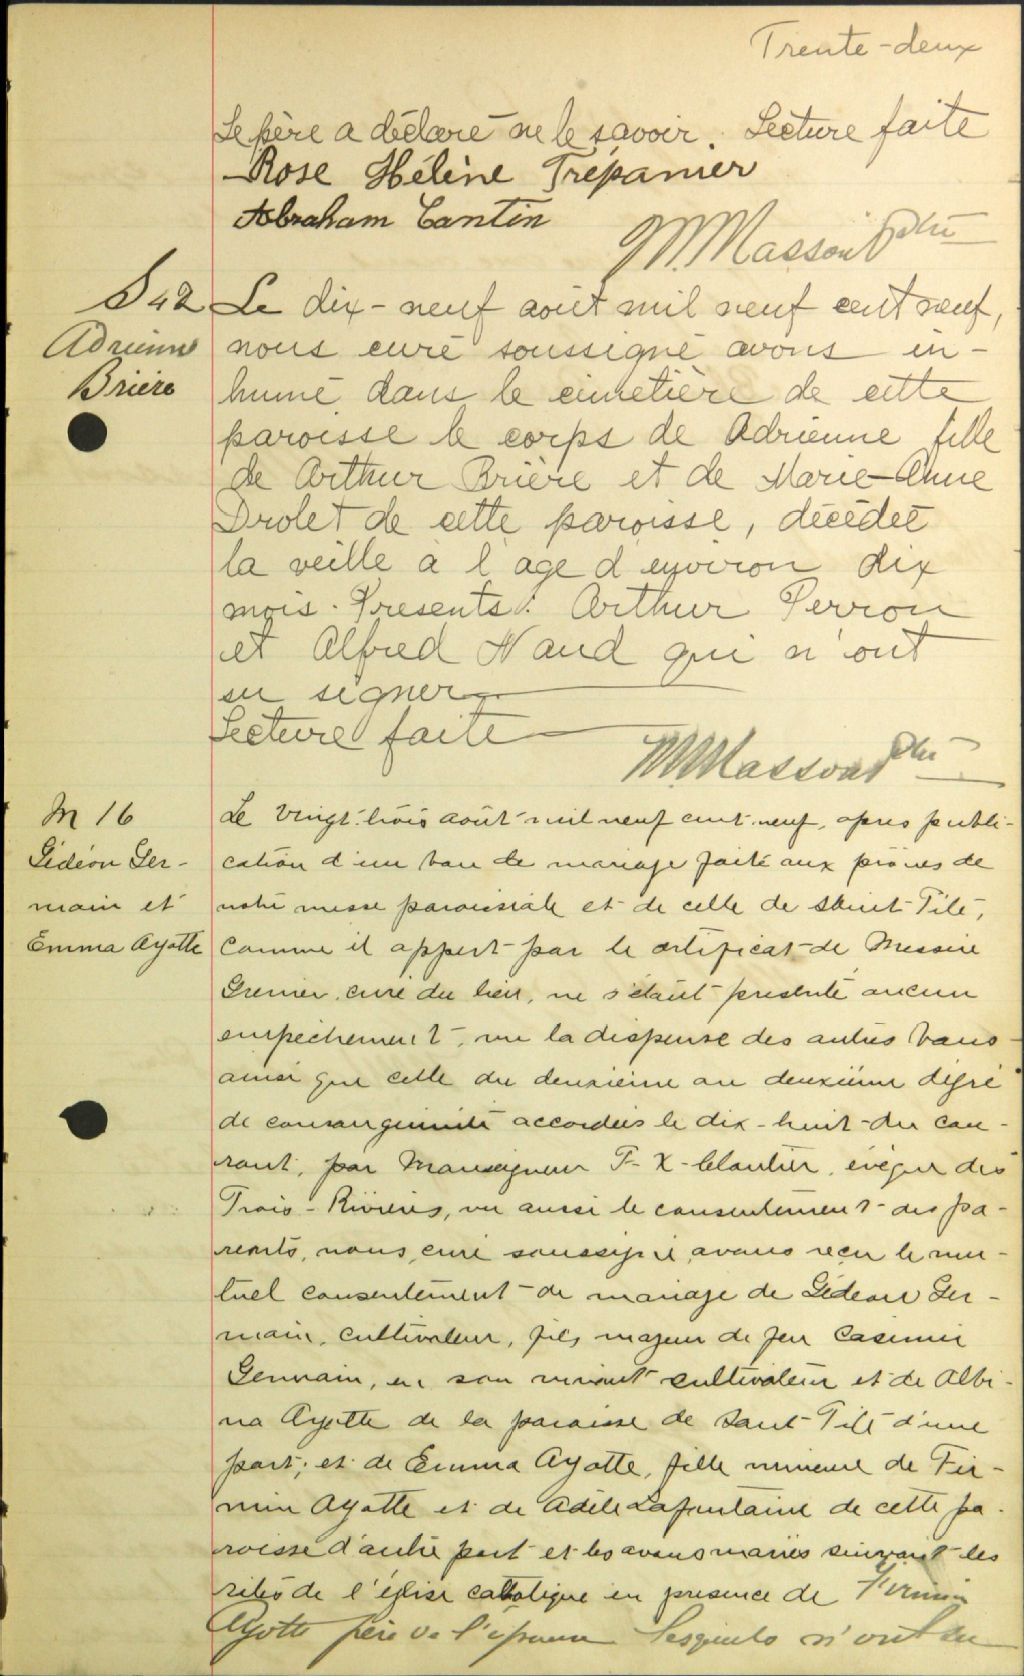 Trente-deux
Le père a déclaré ne le savoir. Lecture faite
Rose Hélène Trépanier
Abraham Cantin
M. Masson Ptre
S 42
Adrienne
Brière
Le dix-neuf août mil neuf cent neuf,
nous curé soussigné avons in-
humé dans le cimetière de cette
paroisse le corps de Adrienne fille
de Arthur Brière et de Marie-Anne
Drolet de cette paroisse, décédée
la veille à l'age d'environ dix
mois. Présents: Arthur Perron
et Alfred Naud qui n'ont
su signer
Lecture faite
M. Masson Ptre
M 16
Gédéon Ger-
main et
Emma Ayotte
Le vingt-trois août mil neuf cent neuf, après publi-
cation d'un ban de mariage faite aux prônes de
notre messe paroissiale et de celle de Saint-Tite,
comme il appert par le certificat de Messire
Grenier, curé du lieu, ne s'étant présenté aucun
empêchement, vu la dispense des autres bans
ainsi que celle du deuxième au deuxième dégré
de consanguinité accordées le dix-huit du cou-
rant, par Monseigneur F-X-Cloutier, évêque des
Trois-Rivières, vu aussi le consentement des pa-
rents, nous, curé soussigné, avons reçu le mu-
tuel consentement de mariage de Gédéon Ger-
main, cultivateur, fils majeur de feu Casimir
Germain, en son vivant cultivateur et de Albi-
na Ayotte de la paroisse de Saint-Tite d'une
part; et de Emma Ayotte, fille mineure de Fir-
min Ayotte et de Adèle Lafontaine de cette pa-
roisse d'autre part et les avons mariés suivant les
rites de l'église catholique en présence de Firmin
Ayotte père de l'épouse lesquels n'ont su